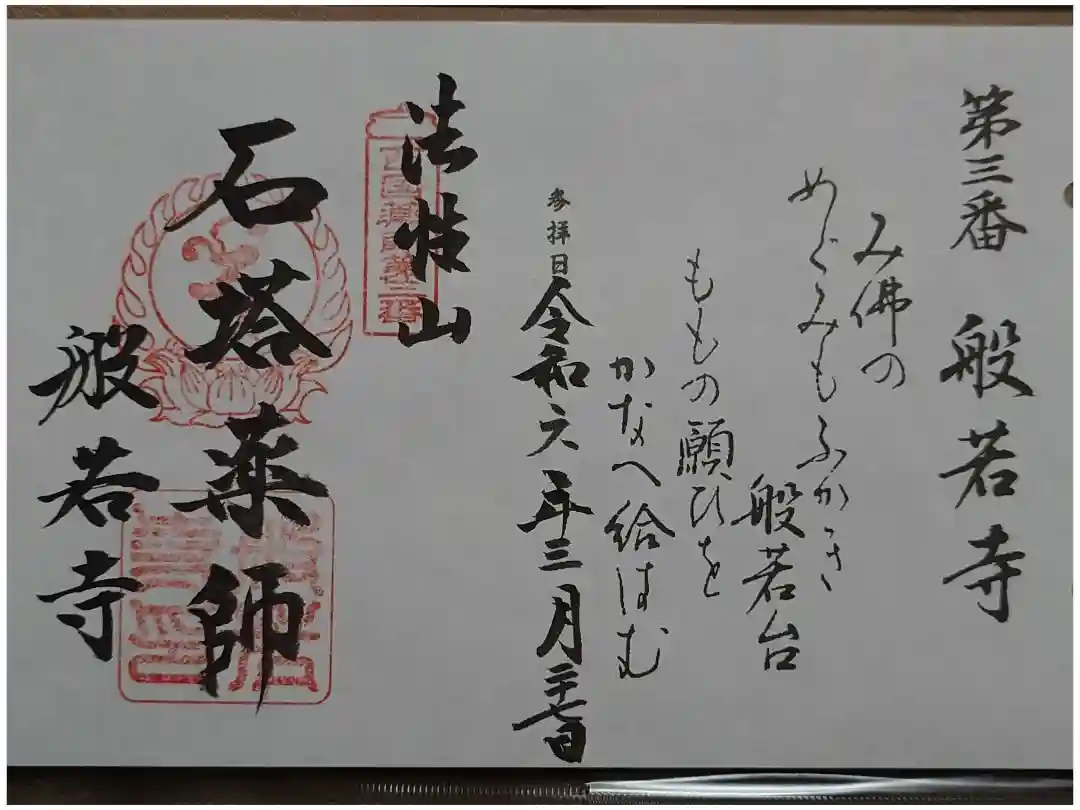 第三番 般若寺
み佛の
めぐみもふかき
般若台
ももの願ひを
かなへ給はむ
参拝日 令和六年三月二十七日
法性山
西国薬師第三番
石塔薬師
般若寺